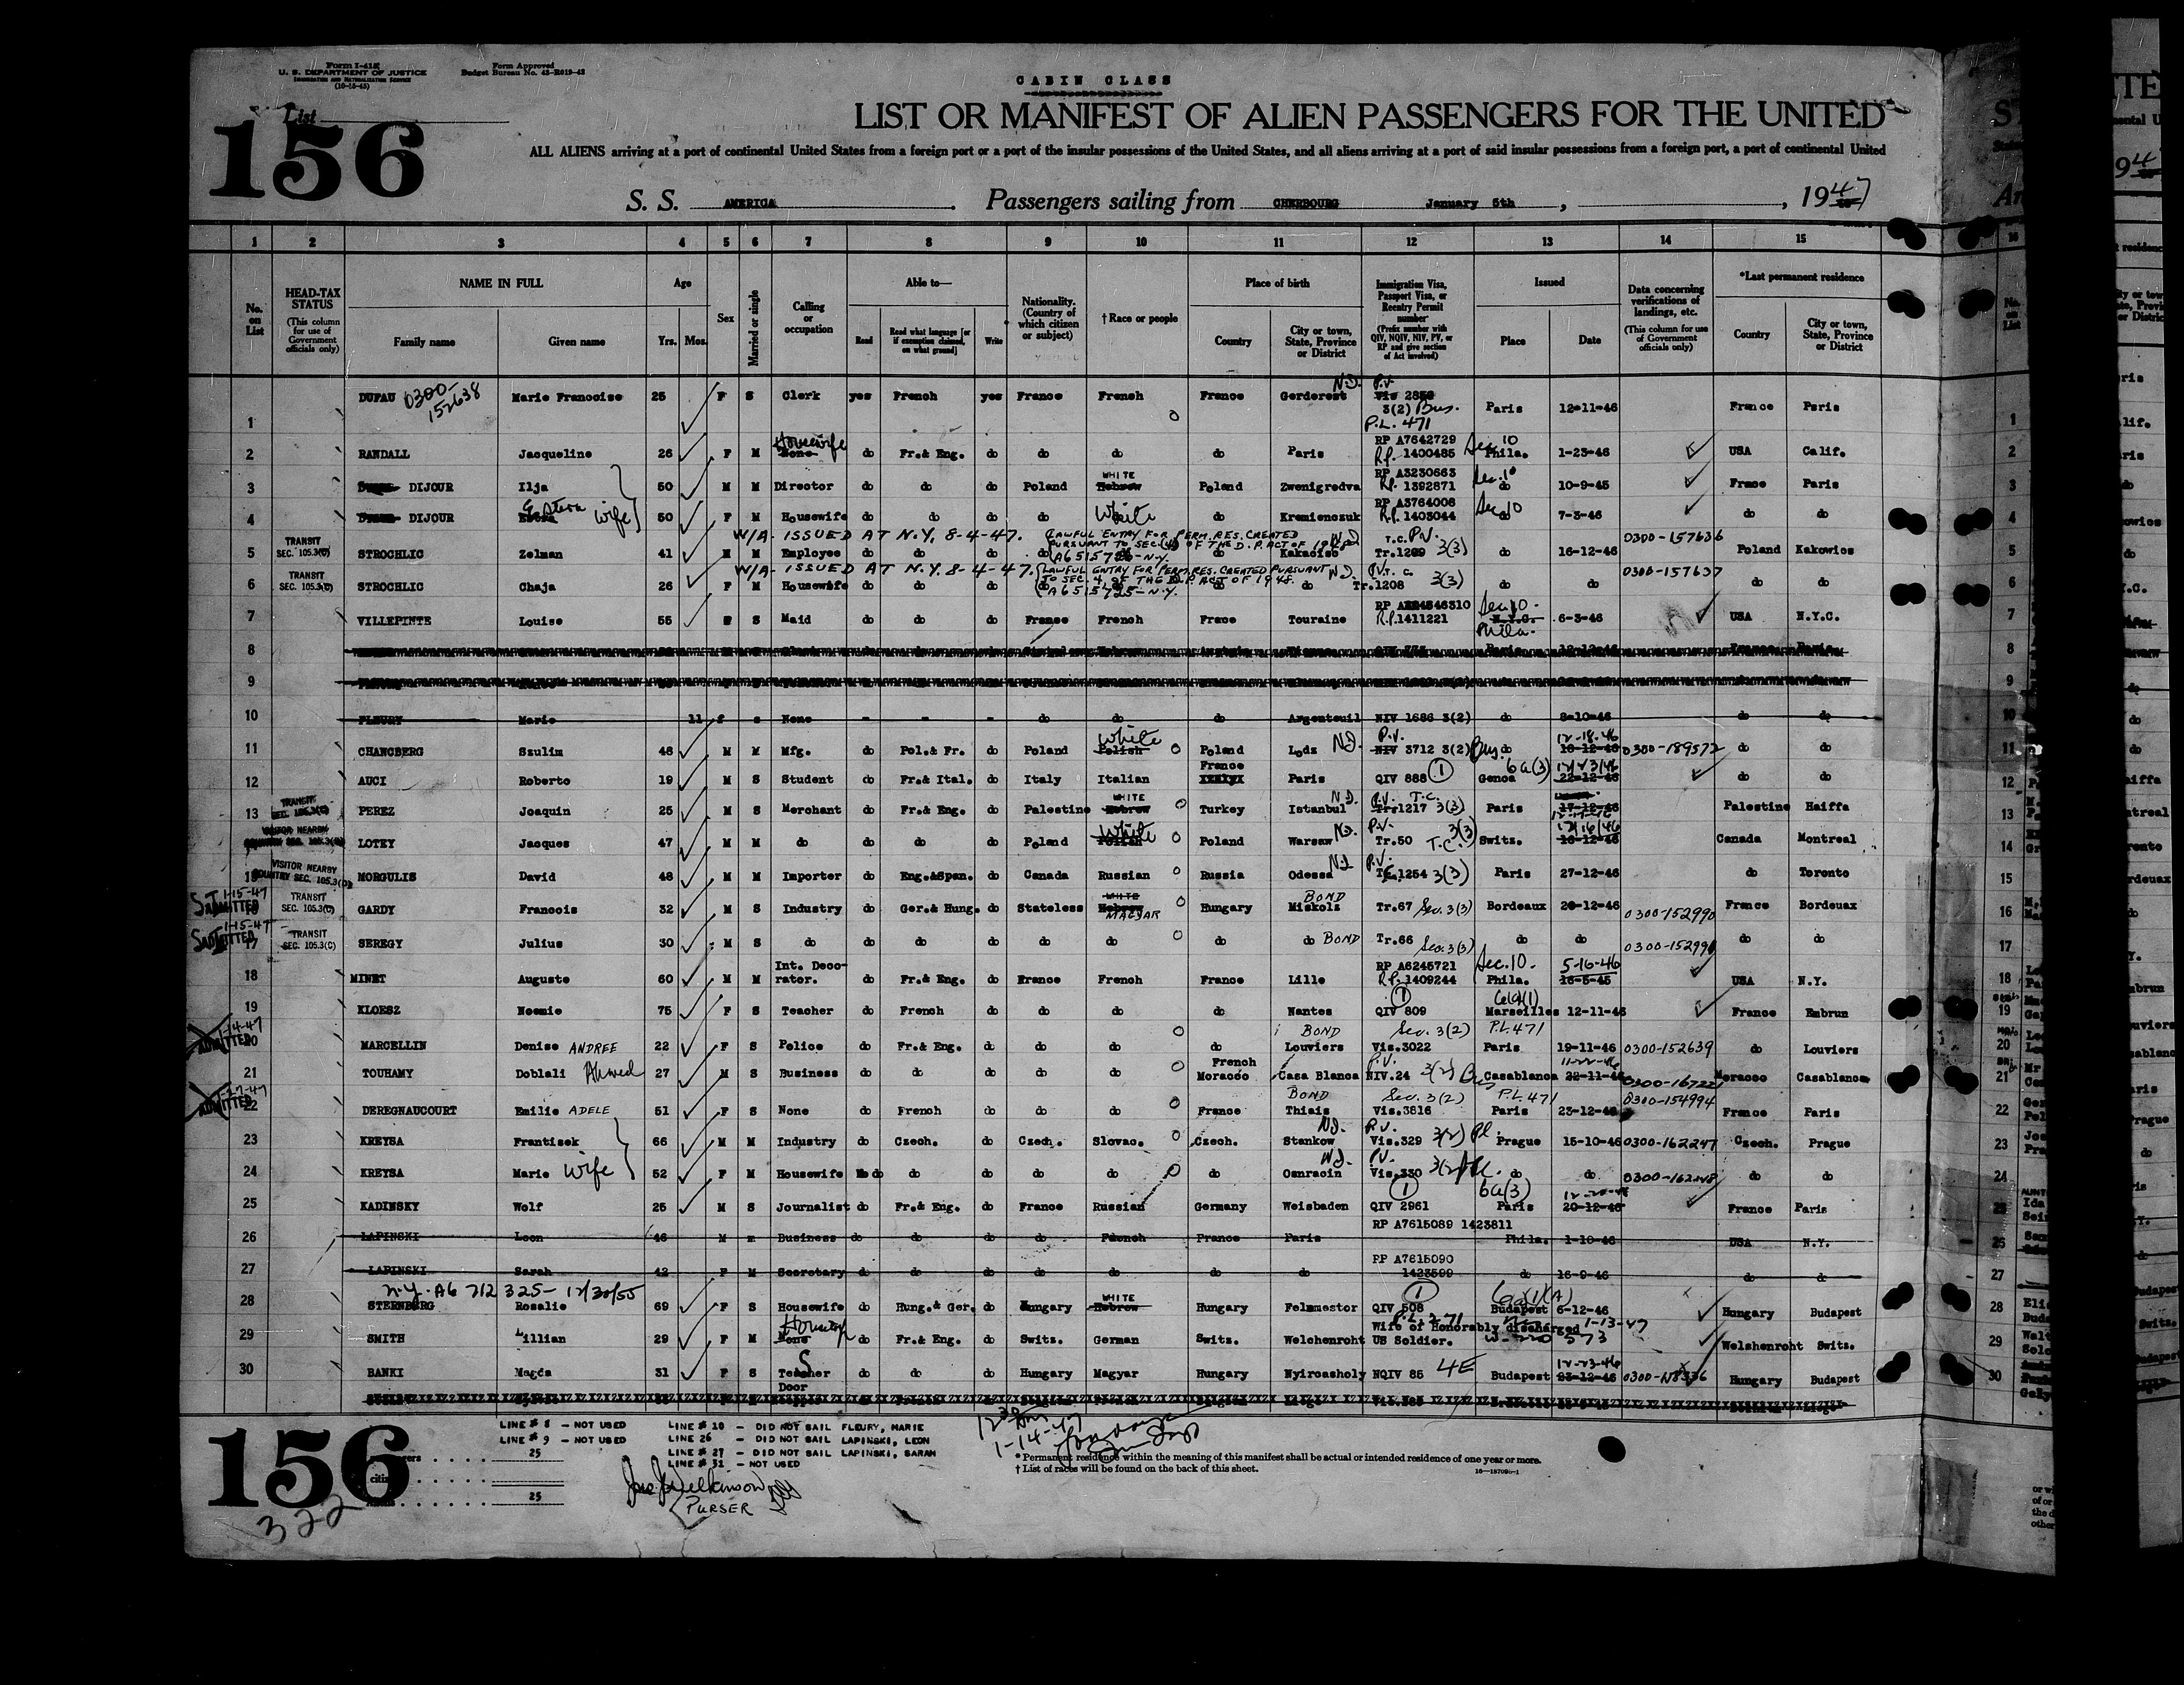 Form I-415
U. S. DEPARTMENT OF JUSTICE
IMMIGRATION AND NATURALIZATION SERVICE
(10-15-45)
Form Approved
Budget Bureau No. 43-R019-43
CABIN CLASS
List
156
LIST OR MANIFEST OF ALIEN PASSENGERS FOR THE UNITED
ALL ALIENS arriving at a port of continental United States from a foreign port or a port of the insular possessions of the United States, and all aliens arriving at a port of said insular possessions from a foreign port, a port of continental United
S. S. AMERICA. Passengers sailing from CHERBOURG January 5th, , 1947
1 2 3 4 5 6 7 8 9 10 11 12 13 14 15
No. on List
HEAD-TAX STATUS (This column for use of Government officials only)
NAME IN FULL Family name Given name
Age Yrs. Mos.
Sex
Married or single
Calling or occupation
Able to— Read Read what language [or if exemption claimed, on what ground] Write
Nationality. (Country of which citizen or subject)
† Race or people
Place of birth Country City or town, State, Province or District
Immigration Visa, Passport Visa, or Reentry Permit number (Prefix number with QIV, NQIV, NIV, PV, or RP and give section of Act involved)
Issued Place Date
Data concerning verifications of landings, etc. (This column for use of Government officials only)
*Last permanent residence Country City or town, State, Province or District
1 DUFAU 0300-152638 Marie Francoise 25 F S Clerk yes French yes France French France Gerderest N.D. P.V. Vis 3(2) Bus. P.L. 471 Paris 12-11-46 France Paris
2 RANDALL Jacqueline 26 F M None Housewife do Fr.& Eng. do do do do Paris RP A7642729 R.P. 1400485 Sec 10 Phila. 1-23-46 USA Calif.
3 DIJOUR Ilja 50 M M Director do do do Poland Hebrew WHITE Poland Zwenigrodva RP A3230663 R.P. 1392871 Sec. 10 do 10-9-45 France Paris
4 DIJOUR wife 50 F M Housewife do do do do White do Kremienczuk RP A3764008 R.P. 1403044 Sec 10 do 7-3-46 do do
W/A- ISSUED AT N.Y, 8-4-47. LAWFUL ENTRY FOR PERM. RES. CREATED PURSUANT TO SEC. (4) OF THE D.P. ACT OF 1948
5 TRANSIT SEC. 105.3(C) STROCHLIC Zelman 41 M M Employee do do do do do Kakacisc T.C. P.V. Tr.1209 3(3) do 16-12-46 0300-157636 Poland Kakowics
W/A- ISSUED AT N.Y. 8-4-47. LAWFUL ENTRY FOR PERM. RES. CREATED PURSUANT TO SEC. 4 OF THE D.P. ACT OF 1948. A6515725-N.Y.
6 TRANSIT SEC. 105.3(C) STROCHLIC Chaja 26 F M Housewife do do do do do do do Tr.1208 3(3) do do 0300-157637 do do
7 VILLEPINTE Louise 55 S Maid do do do France French France Touraine R.P. 1411221 Sec. 10 - N.Y.C. Phila. 6-3-46 USA N.Y.C.
8
9
10 FLEURY Marie 11 f s None - - - do do do Argenteuil NIV 1686 3(2) do 8-10-46 do do
11 CHANCBERG Szulim 48 M M Mfg. do Pol.& Fr. do Poland Polish White Poland Lodz N.D. P.V. NIV 3712 3(2) Bus do 12-18-46 0300-189572 do do
12 AUCI Roberto 19 M S Student do Fr.& Ital. do Italy Italian France Paris QIV 888 1 6a(3) Genoa 22-12-46 12/23/46 do do
13 TRANSIT SEC. 105.3(C) PEREZ Joaquin 25 M S Merchant do Fr.& Eng. do Palestine Hebrew WHITE Turkey Istanbul N.D. P.V. T.C. Tr.1217 3(3) Paris 17-12-46 Palestine Haiffa
14 VISITOR NEARBY COUNTRY SEC. 105.3(D) LOTEY Jacques 47 M M do do do do Poland Polish White Poland Warsaw N.D. P.V. Tr.50 T.C. 3(3) Switz. 12/16/46 16-12-46 Canada Montreal
15 VISITOR NEARBY COUNTRY SEC. 105.3(D) MORGULIS David 48 M M Importer do Eng.&Span. do Canada Russian Russia Odessa N.D. P.V. 1254 3(3) Paris 27-12-46 do Toronto
16 1-15-47 ADMITTED TRANSIT SEC. 105.3(C) GARDY Francois 32 M S Industry do Ger.& Hung. do Stateless Hebrew WHITE MAGYAR Hungary Miskolz BOND Tr.67 Sec. 3(3) Bordeaux 20-12-46 0300-152990 France Bordeux
17 1-15-47 ADMITTED TRANSIT SEC. 105.3(C) SEREGY Julius 30 M S do do do do do do do do BOND Tr.66 Sec. 3(3) do do do do
18 MINET Auguste 60 M M Int. Decorator. do Fr.& Eng. do France French France Lille RP A6245721 R.P. 1409244 Sec. 10. Phila. 5-16-46 16-5-45 USA N.Y.
19 KLOESZ Noemie 75 F S Teacher do French do do do do Nantes 1 QIV 809 Marseilles 12-11-46 France Embrun
20 1-14-47 ADMITTED MARCELLIN Denise ANDREE 22 F S Police do Fr.& Eng. do do do do BOND Louviers Sec. 3(2) Vis.3022 P.L. 471 Paris 19-11-46 0300-152639 do Louviers
21 TOUHAMY Doblali Ahmed 27 M S Business do do do do do French Morocco Casa Blanca P.V. NIV.24 3(2) Bus Casablanca 22-11-46 Morocco Casablanca
22 ADMITTED DEREGNAUCOURT Emilie ADELE 51 F S None do French do do do France BOND Thiais Sec. 3(2) Vis.3816 P.L. 471 Paris 23-12-46 0300-154994 France Paris
23 KREYSA Frantisek 66 M M Industry do Czech. do Czech. Slovac. Czech. Stankow N.D. P.V. Vis.329 3(2) Pl. Prague 15-10-46 0300-162247 Czech. Prague
24 KREYSA Marie wife 52 F M Housewife do do do do do do Osnracin P.V. Vis.330 3(2) Pl. do do 0300-162248 do do
25 KADINSKY Wolf 25 M S Journalist do Fr.& Eng. do France Russian Germany Weisbaden 1 QIV 2961 6a(3) Paris 20-12-46 France Paris
26 LAPINSKI Leon 46 M m Business do do do do French France Paris RP A7615089 1423811 Phila. 1-10-46 USA N.Y.
27 LAPINSKI Sarah 42 F M Secretary do do do do do do do RP A7615090 1423599 do 16-9-46 do do
N.Y. A6 712 325- 12/30/55
28 STERNBERG Rosalie 69 F S Housewife do Hung.& Ger. do Hungary Hebrew WHITE Hungary Felsmestor 1 QIV 508 Budapest 6-12-46 Hungary Budapest
29 SMITH Lillian 29 F M None do Fr.& Eng. do Switz. German Switz. Welchenroht P.L. 271 Wife of Honorably discharged US Soldier. 1-13-47 Welshenroht Switz.
30 BANKI Magda 31 F S Teacher do do do Hungary Magyar Hungary Nyiroasholy NQIV 85 4E Budapest 12-23-46 23-12-46 Hungary Budapest
Door
156
LINE # 8 — NOT USED
LINE # 9 — NOT USED
25
25
LINE # 10 — DID NOT SAIL FLEURY, MARIE
LINE 26 — DID NOT SAIL LAPINSKI, LEON
LINE # 27 — DID NOT SAIL LAPINSKI, SARAH
LINE # 31 — NOT USED
Wilkinson
PURSER
1-14-47
* Permanent residence within the meaning of this manifest shall be actual or intended residence of one year or more.
† List of races will be found on the back of this sheet.
322